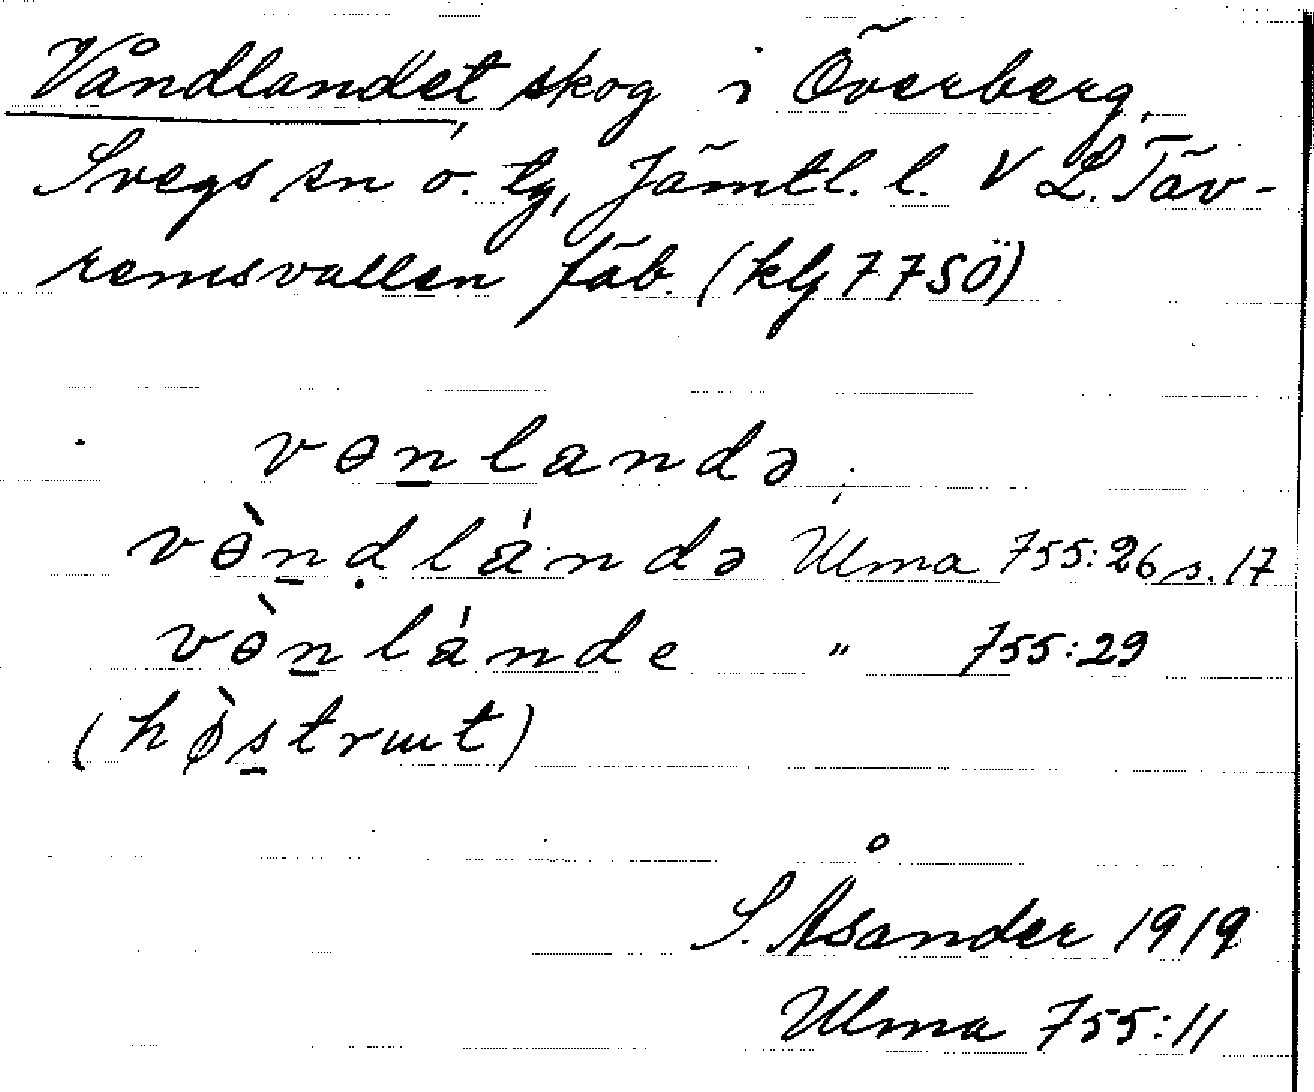 Våndlandet, skog i Överberg,
Svegs sn o. tg, Jämtl. l. V L. Täv-
remsvallen fäb. (kbl 77SÖ)
vɵnlandə,
vɵ̀nḍlándə Ulma 755:26 s. 17
vɵ̀nlánde " 755:29
(hø̀strɯt)
S. Åsander 1919
Ulma 755:11